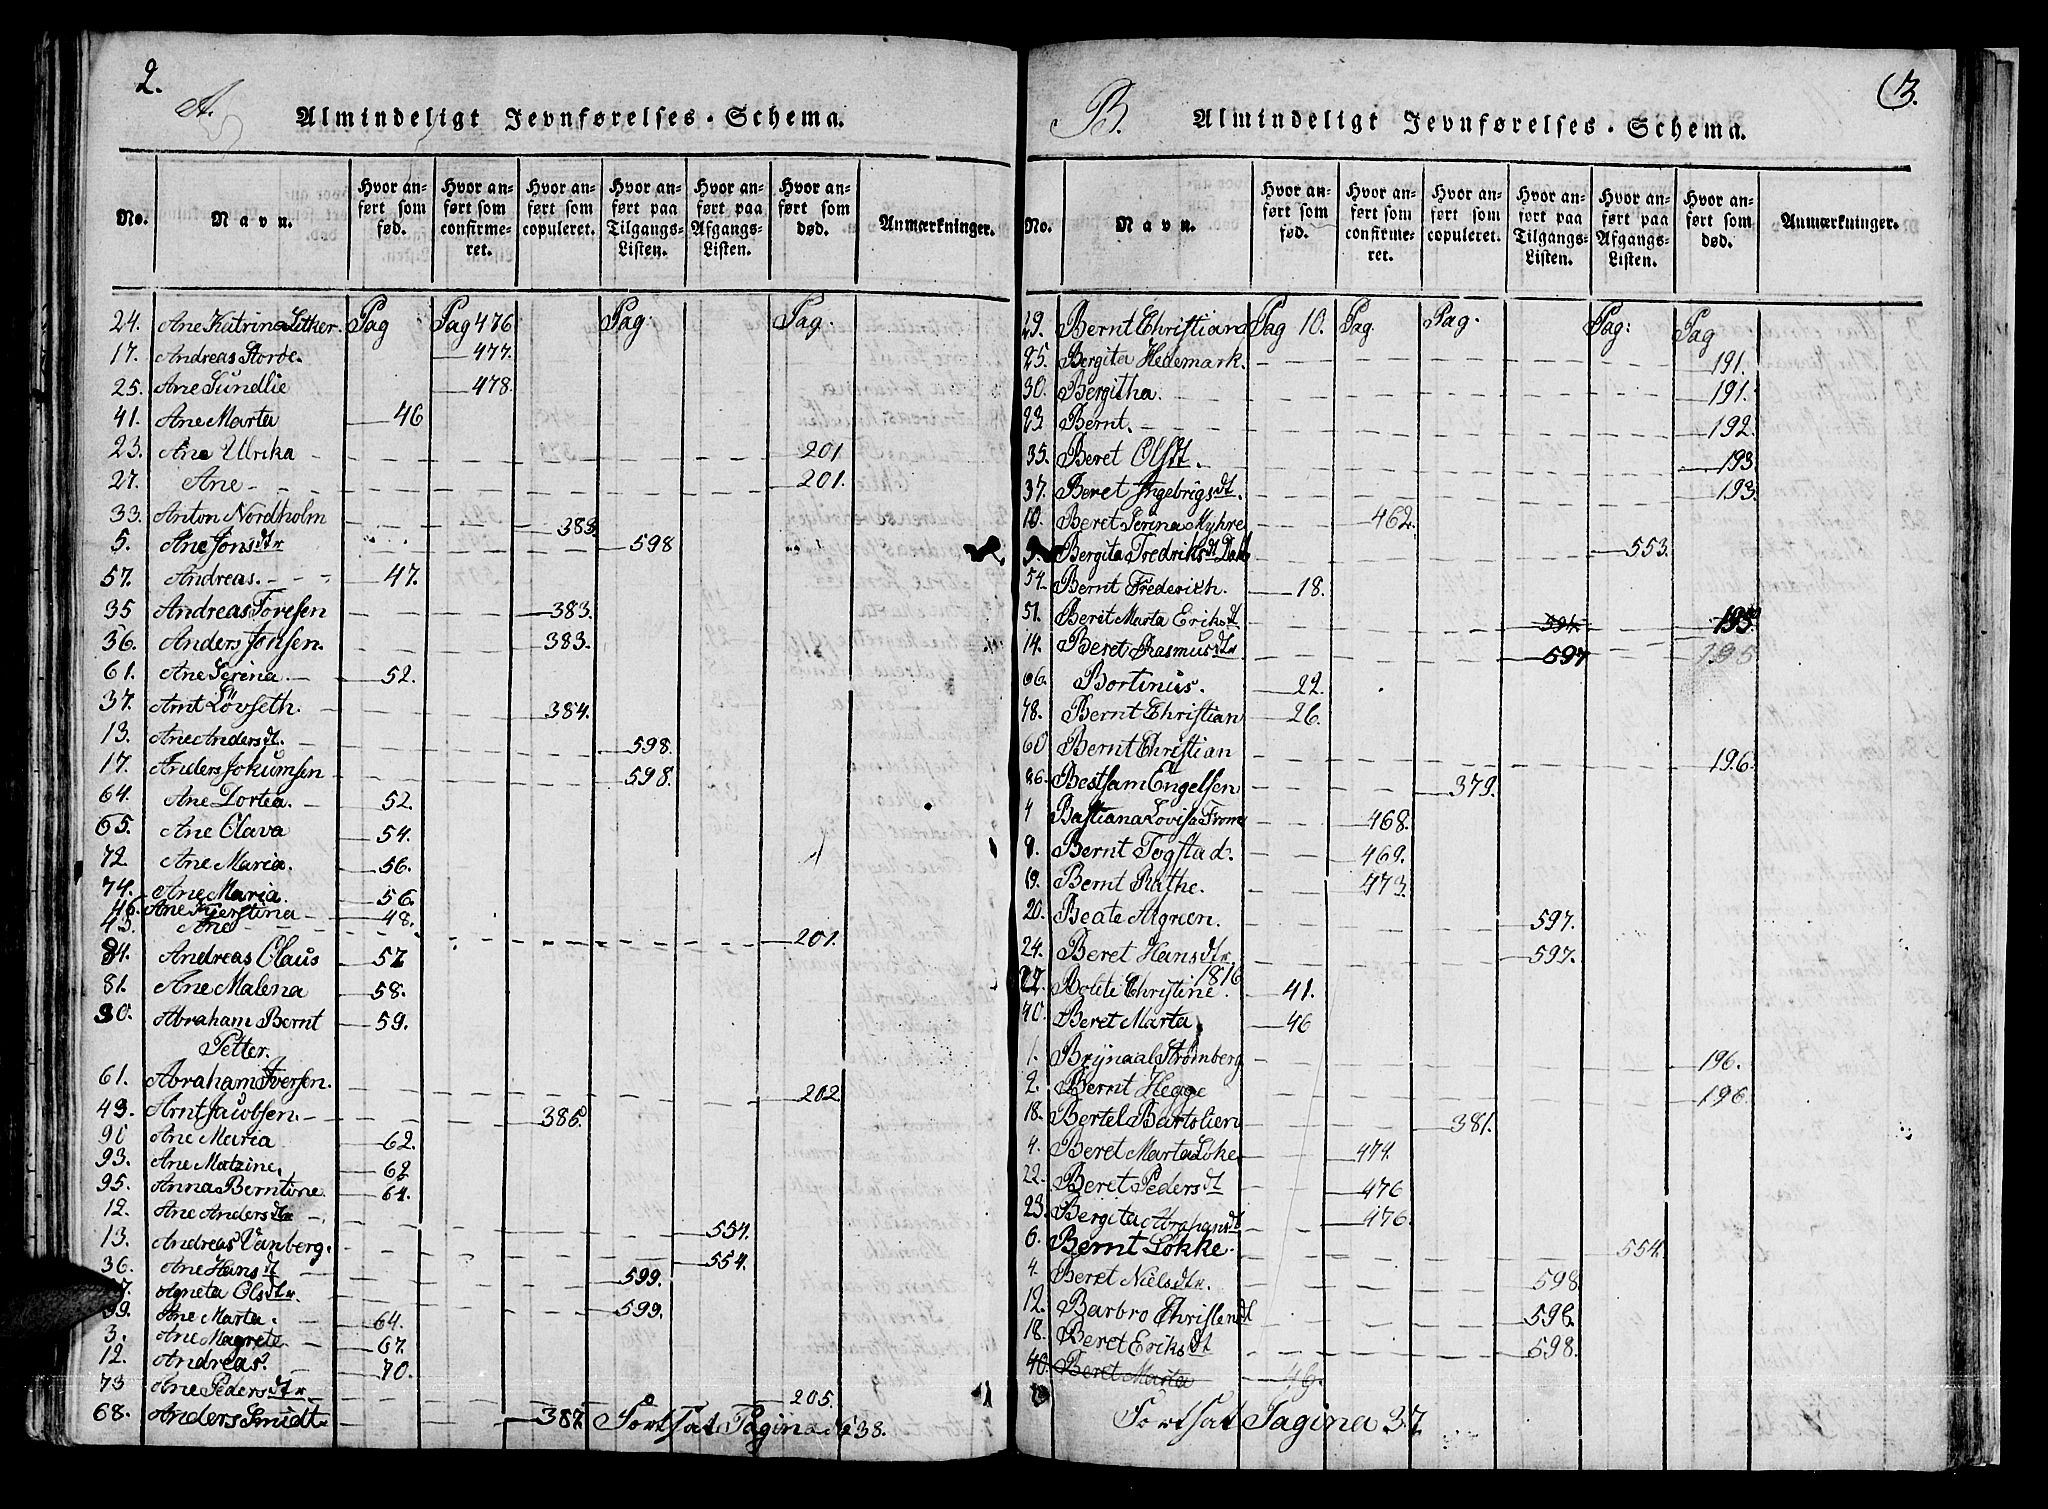 2.
A.
Almindeligt Jevnførelses-Schema.
No. Navn. Hvor anført som fød. Hvor anført som confirmeret. Hvor anført som copuleret. Hvor anført paa Tilgangs-Listen. Hvor anført paa Afgangs-Listen. Hvor anført som død. Anmærkninger.
24. Ane Katrina Letker. Pag Pag 476 Pag. Pag.
17. Andreas Storøe. 477.
25. Ane Sundlie 478.
41. Ane Marta 46
23. Ane Ulrika 201
27. Ane 201.
33. Anton Nordholm 383.
5. Ane Jonsdtr 598
57. Andreas. 47.
35 Andreas Toresen 383.
36. Anders Jonsen. 383.
61. Ane Serina. 52.
37. Arnt Løvseth. 384.
13. Ane Andersdt. 598.
17. Anders Jokumsen 598.
64. Ane Dortea. 52.
65. Ane Olava 54.
72 Ane Maria. 56.
74. Ane Maria. 56.
46. Ane Kierstina 48.
43. Ane 201.
84. Andreas Olaus 57
81. Ane Malena 58.
30. Abraham Bernt 59.
Petter.
61. Abraham Iversen. 202
49. Arnt Jacobsen. 386.
90 Ane Maria 62.
93. Ane Matzine. 62
95. Anna Berntine 64.
12. Ane Andersdtr 554.
13. Andreas Vanberg. 554.
36. Ane Hansdt 599.
Agneta Olsdtr. 599.
99. Ane Marta. 64.
3. Ane Magrete 67.
12. Andreas. 70.
73 Ane Pedersdtr 205.
68. Anders Smidt 387. Fortsat Pagina 638.
3.
B.
Almindeligt Jevnførelses-Schema.
No. Navn. Hvor anført som fød. Hvor anført som confirmeret. Hvor anført som copuleret. Hvor anført paa Tilgangs-Listen. Hvor anført paa Afgangs-Listen. Hvor anført som død. Anmærkninger.
29. Bernt Christian Pag 10. Pag. Pag. Pag: Pag
25. Bergita Hedemark. 191.
30. Bergitha. 191.
23 Bernt. 192.
35. Beret Olsdt. 193.
37. Beret Ingebrigsdt. 193.
10. Beret Serina Myhre 462.
Bergita Fredriksdt Dahl 553.
54. Bernt Frederich. 18.
51. Berit Marta Eriksdt 594.
14. Beret Rasmusdtr 597 195
66. Bortinus. 22.
78. Bernt Christian 26.
60 Bernt Christian 196.
26. Bestsam Engelsen 379.
4 Bastiana Lovisa From 468.
9. Bernt Togstad. 469.
19. Bernt Rathe. 473.
20. Beate Algrien. 597.
24. Beret Hansdtr. 597.
22. Bolete Christine. 1816 41.
40. Beret Marta 46
1. Brynaal Strømberg 196.
2. Bernt Hegge 196.
18. Bertel Bartolien 381.
4. Beret Marta Løke. 474.
22. Beret Pedersdt 476
23. Bergita Abrahamsdt 476.
6. Bernt Løkke. 554.
4. Beret Nielsdtr. 598.
12. Barbro Christensdt 598.
18. Beret Eriksdt 598.
40. Beret Marta 46.
Fortsat Pagina 37.